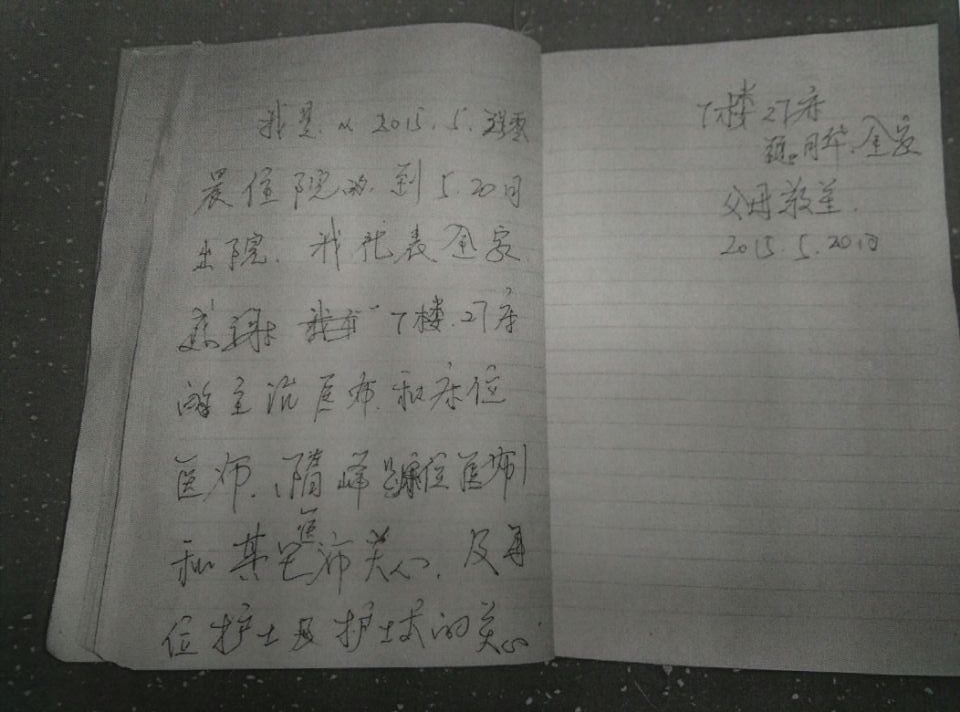 我是从2015.5.
晨住院的到5.20日
出院.我代表全家
感谢 7楼.27床
的主治医师.和床位
医师.隋峰 医师
和其它医师关心.及每
位护士及护士长的关心
7楼27床
月华.全家
父母敬呈.
2015.5.20日